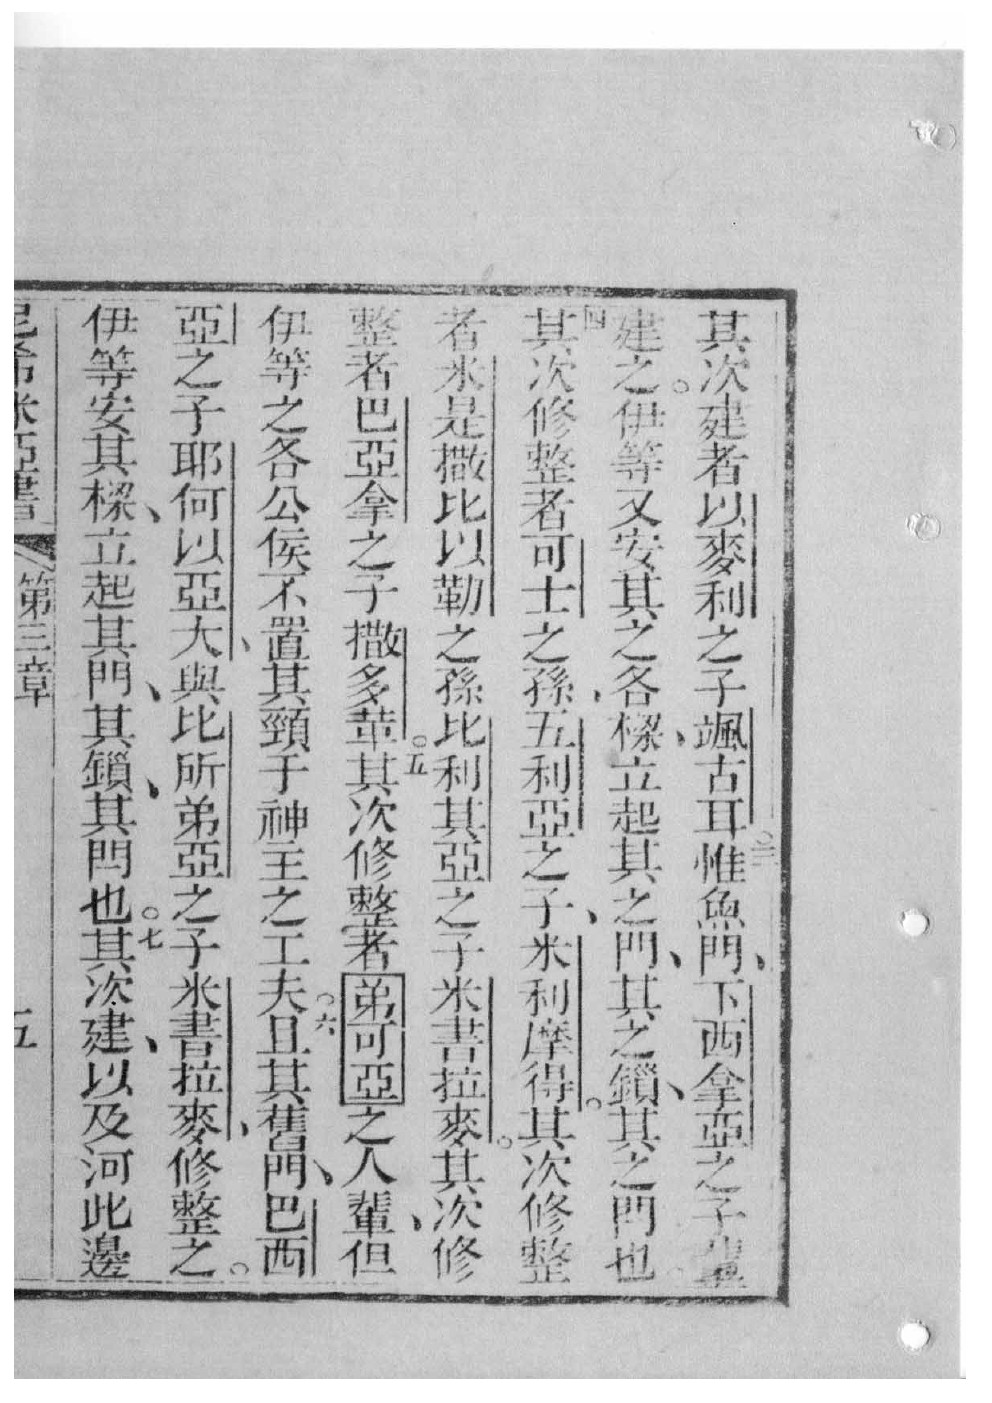 其次建者以麥利之子颯古耳。三惟魚門、下西拿亞之子輩
建之。伊等又安其之各樑、立起其之門、其之鎖、其之閂也。
四其次修整者可士之孫、五利亞之子、米利摩得。其次修整
者米是撒比以勒之孫比利其亞之子米書拉麥。其次修
整者巴亞拿之子撒多革。五其次修整者弟可亞之人輩、但
伊等之各公侯不置其頸于神主之工夫。六且其舊門、巴西
亞之子耶何以亞大、與比所弟亞之子米書拉麥、修整之。
伊等安其樑、立起其門、其鎖、其閂也。七其次建、以及河此邊
尼希米亞書 第三章 五